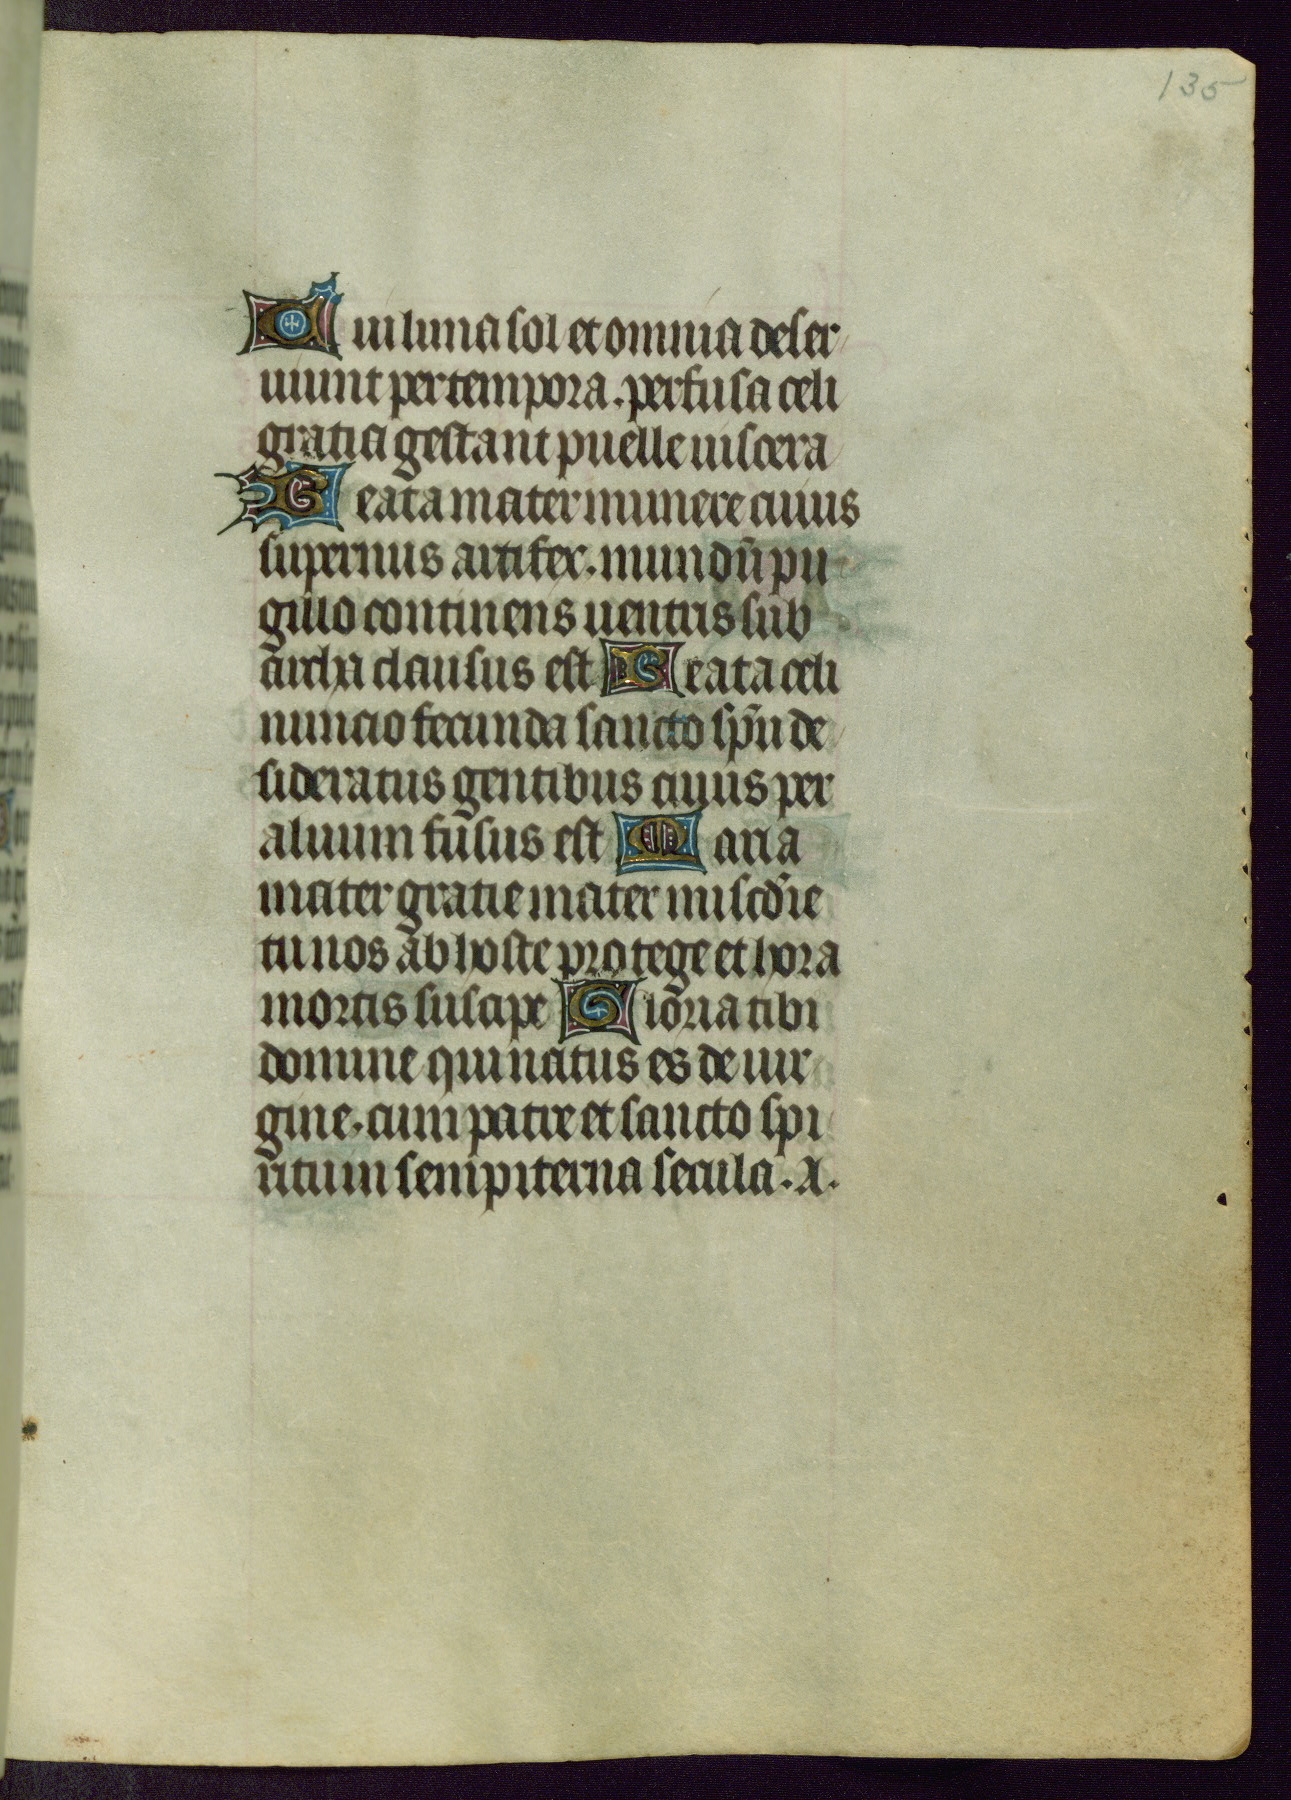 135
Cui luna sol et omnia deser
uiunt per tempora. perfusa celi
gratia gestant puelle uiscera
Beata mater munere cuius
supernus artifex. mundū pu
gillo continens uentris sub
archa clausus est Beata celi
nuncio fecunda sancto spū de
sideratus gentibus cuius per
aluum fusus est Maria
mater gratie mater miscđie
tu nos ab hoste protege et hora
mortis suscipe Gloria tibi
domine qui natus es de uir
gine. cum patre et sancto spi
ritum sempiterna secula. A.